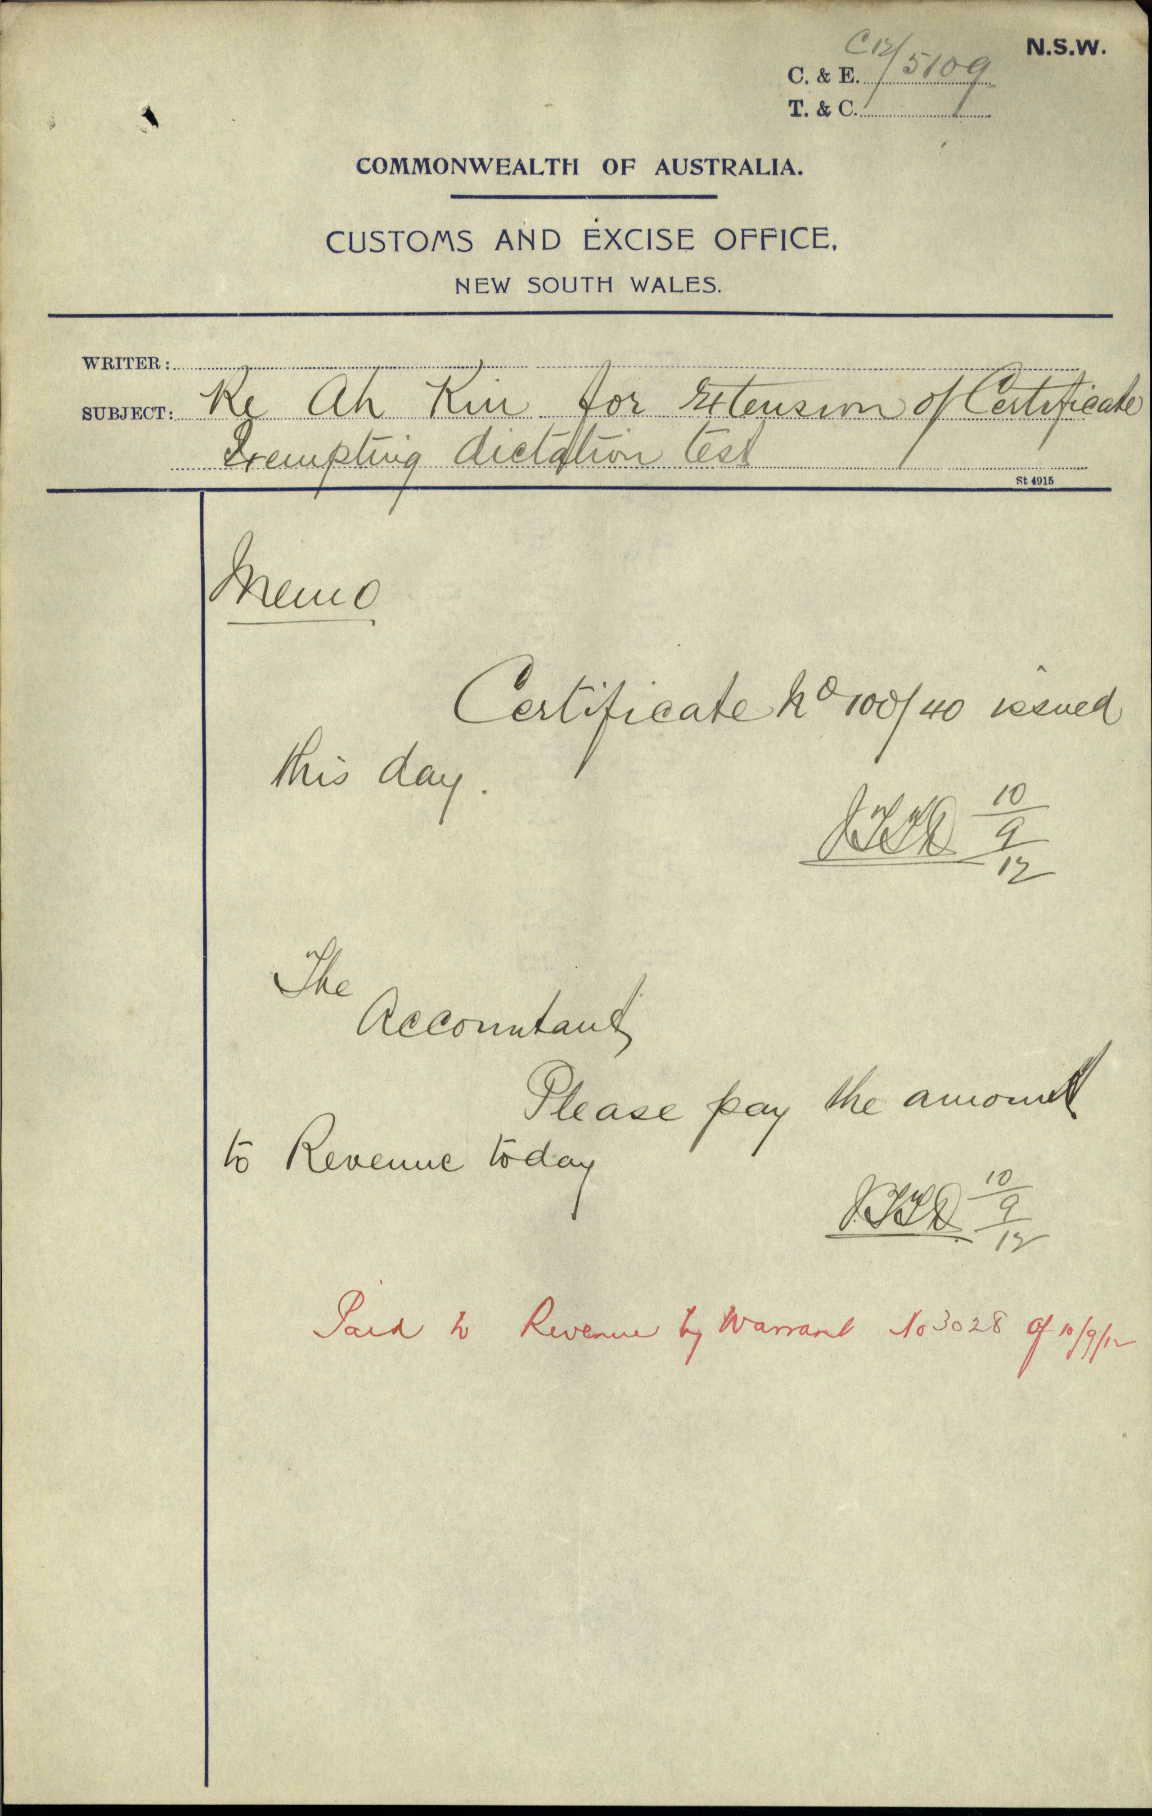 N.S.W.
C. & E. C12/5109
T. & C.
COMMONWEALTH OF AUSTRALIA.
CUSTOMS AND EXCISE OFFICE,
NEW SOUTH WALES.
WRITER:
SUBJECT: Re Ah Kin for Extension of Certificate
Exempting dictation test
St 4915
Memo
Certificate No 100/40 issued
this day.
10
9
12
The
Accountant,
Please pay the amount
to Revenue today
10
9
12
Paid to Revenue by Warrant No 3028 of 10/9/12